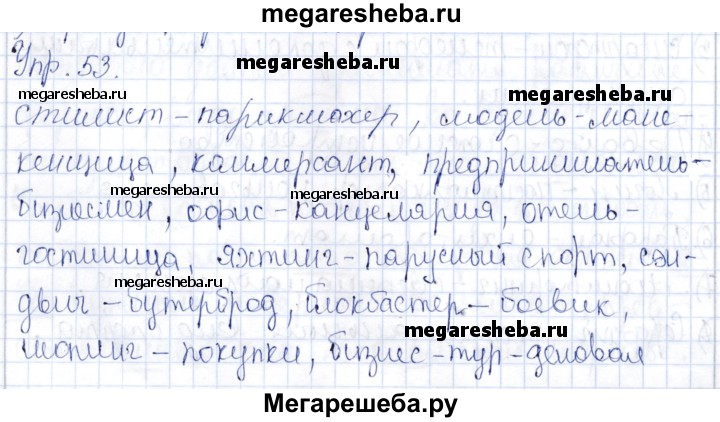 megaresheba.ru
Упр. 53.
megaresheba.ru
megaresheba.ru
megaresheba.ru
стилист - парикмахер, модель - мане-
кенщица, коммерсант, предприниматель -
megaresheba.ru
megaresheba.ru
бизнесмен, офис - канцелярия, отель -
гостиница, яхтинг - парусный спорт, сэн-
megaresheba.ru
двич - бутерброд, блокбастер - боевик,
megaresheba.ru
шопинг - покупки, бизнес-тур - деловая
Мегарешеба.ру